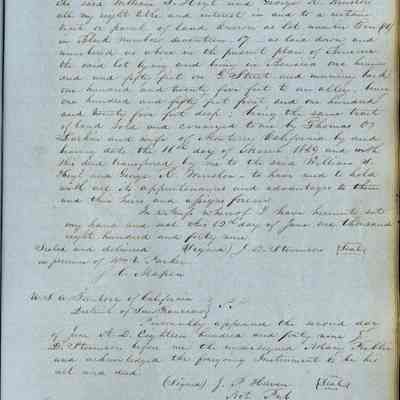 the said William S. Hoyt and George R. Winslow
all my right title and interest in and to a certain
tract or parcel of Land known as lot number Four (4)
in Block number seventeen 17 as laid down and
numbered as above in the present plan of Benicia
the said lot lying and being in Benicia one hundred
and and fifty feet on G Street and running back
one hundred and twenty five feet to an alley, being
one hundred and fifty feet front and one hundred
and twenty five feet deep; being the same tract
of Land sold and conveyed to me by Thomas O.
Larkin and wife of Monterey California by deed
bearing date the 11th day of March 1849 and with
this deed transferred by me to the said William S.
Hoyt and George R. Winslow — to have and to hold
with all its appurtenances and advantages to them
and their heirs and assigns forever
In Witness whereof I have hereunto set
my hand and seal this 12th day of June one thousand
eight hundred and forty nine
Sealed and delivered (Signed) J. D. Stevenson (Seal)
in presence of Wm. Parker
Territory of California
District of San Francisco
Personally appeared the second day
of June A.D. Eighteen hundred and forty nine J.
D. Stevenson before me the undersigned Notary Public
and acknowledged the foregoing Instrument to be his
act and deed
(Signed) J. P. Haven (Seal)
Not. Pub.